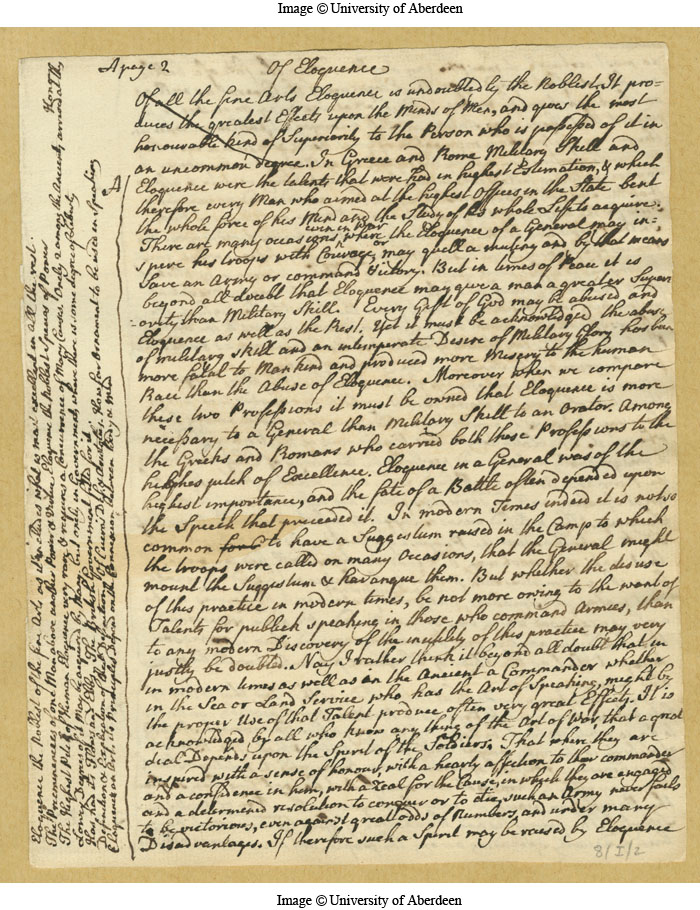 Image © University of Aberdeen
A page 2
Of Eloquence
Of all the fine Arts Eloquence is undoubtedly the Noblest. It pro=
duces the greatest Effects upon the Minds of Men, and gives the most
honourable kind of Superiority to the Person who is possessed of it in
an uncommon degree. In Greece and Rome Military Skill and
Eloquence were the talents that were had in highest Estimation, & which
therefore every Man who aimed at the highest Offices in the State bent
the whole force of his Mind and the Study of his whole Life to acquire.
even in War
There are many occasions where the Eloquence of a General may in=
spire his troops with Courage, or may quell a mutiny and by that means
save an Army or command Victory. But in times of Peace it is
beyond all doubt that Eloquence may give a man a greater Superi
=ority than Military Skill. Every Gift of God may be abused and
Eloquence as well as the Rest. Yet it must be acknowledged the abuse
of military skill and an intemperate Desire of Military Glory has been
more fatal to Mankind and produced more Misery to the human
Race than the Abuse of Eloquence. Moreover when we compare
these two Professions it must be owned that Eloquence is more
necessary to a General than Military Skill to an Orator. Among
the Greeks and Romans who carried both these Professions to the
highest pitch of Excellence. Eloquence in a General was of the
highest importance, and the fate of a Battle often depended upon
the Speech that preceeded it. In modern Times indeed it is not so
common to have a Suggestum raised in the Camp to which
the troops were called on many Occasions, that the General might
mount the Suggestum & harangue them. But whether the disuse
of this practice in modern times, be not more owing to the want of
Talents for publick speaking in those who command Armies, than
to any modern Discovery of the inutility of this practice may very
justly be doubted. Nay I rather think it beyond all doubt that in
in modern times as well as in the Ancient a Commander whether
in the Sea or Land Service who has the Art of Speaking, might by
the proper Use of that Talent produce often very great Effects. It is
acknowledged by all who know any thing of the Art of War, that a great
deal Depends upon the Spirit of the Soldiers. That where they are
inspired with a sense of honour, with a hearty affection to their commander
and a confidence in him, with a Zeal for the Cause, in which they are engaged
and a determind resolution to conquer or to die, such an Army never fails
to be victorious, even against great odds of Numbers, and under many
Disadvantages. If therefore such a Spirit may be raised by Eloquence
8/I/2
A
Eloquence the Noblest of the fine Arts, as it includes what is most excellent in all the rest.
The Preeminences of one Man above another Power & Virtue. Eloquence the Noblest Species of Power
The Highest Pitch of human Eloquence very rare, & requires a Concurrence of Many Causes. Only 2 among the Ancients arrived at this
Lower Degrees of it May be acquired by Many but onely in Governments where there is some degree of Liberty
Has had its Tides and Ebbs. The British Government fitted for it.
Eloquence an Art. Its Principles Depend on the Connexion between Body & Mind
Image © University of Aberdeen